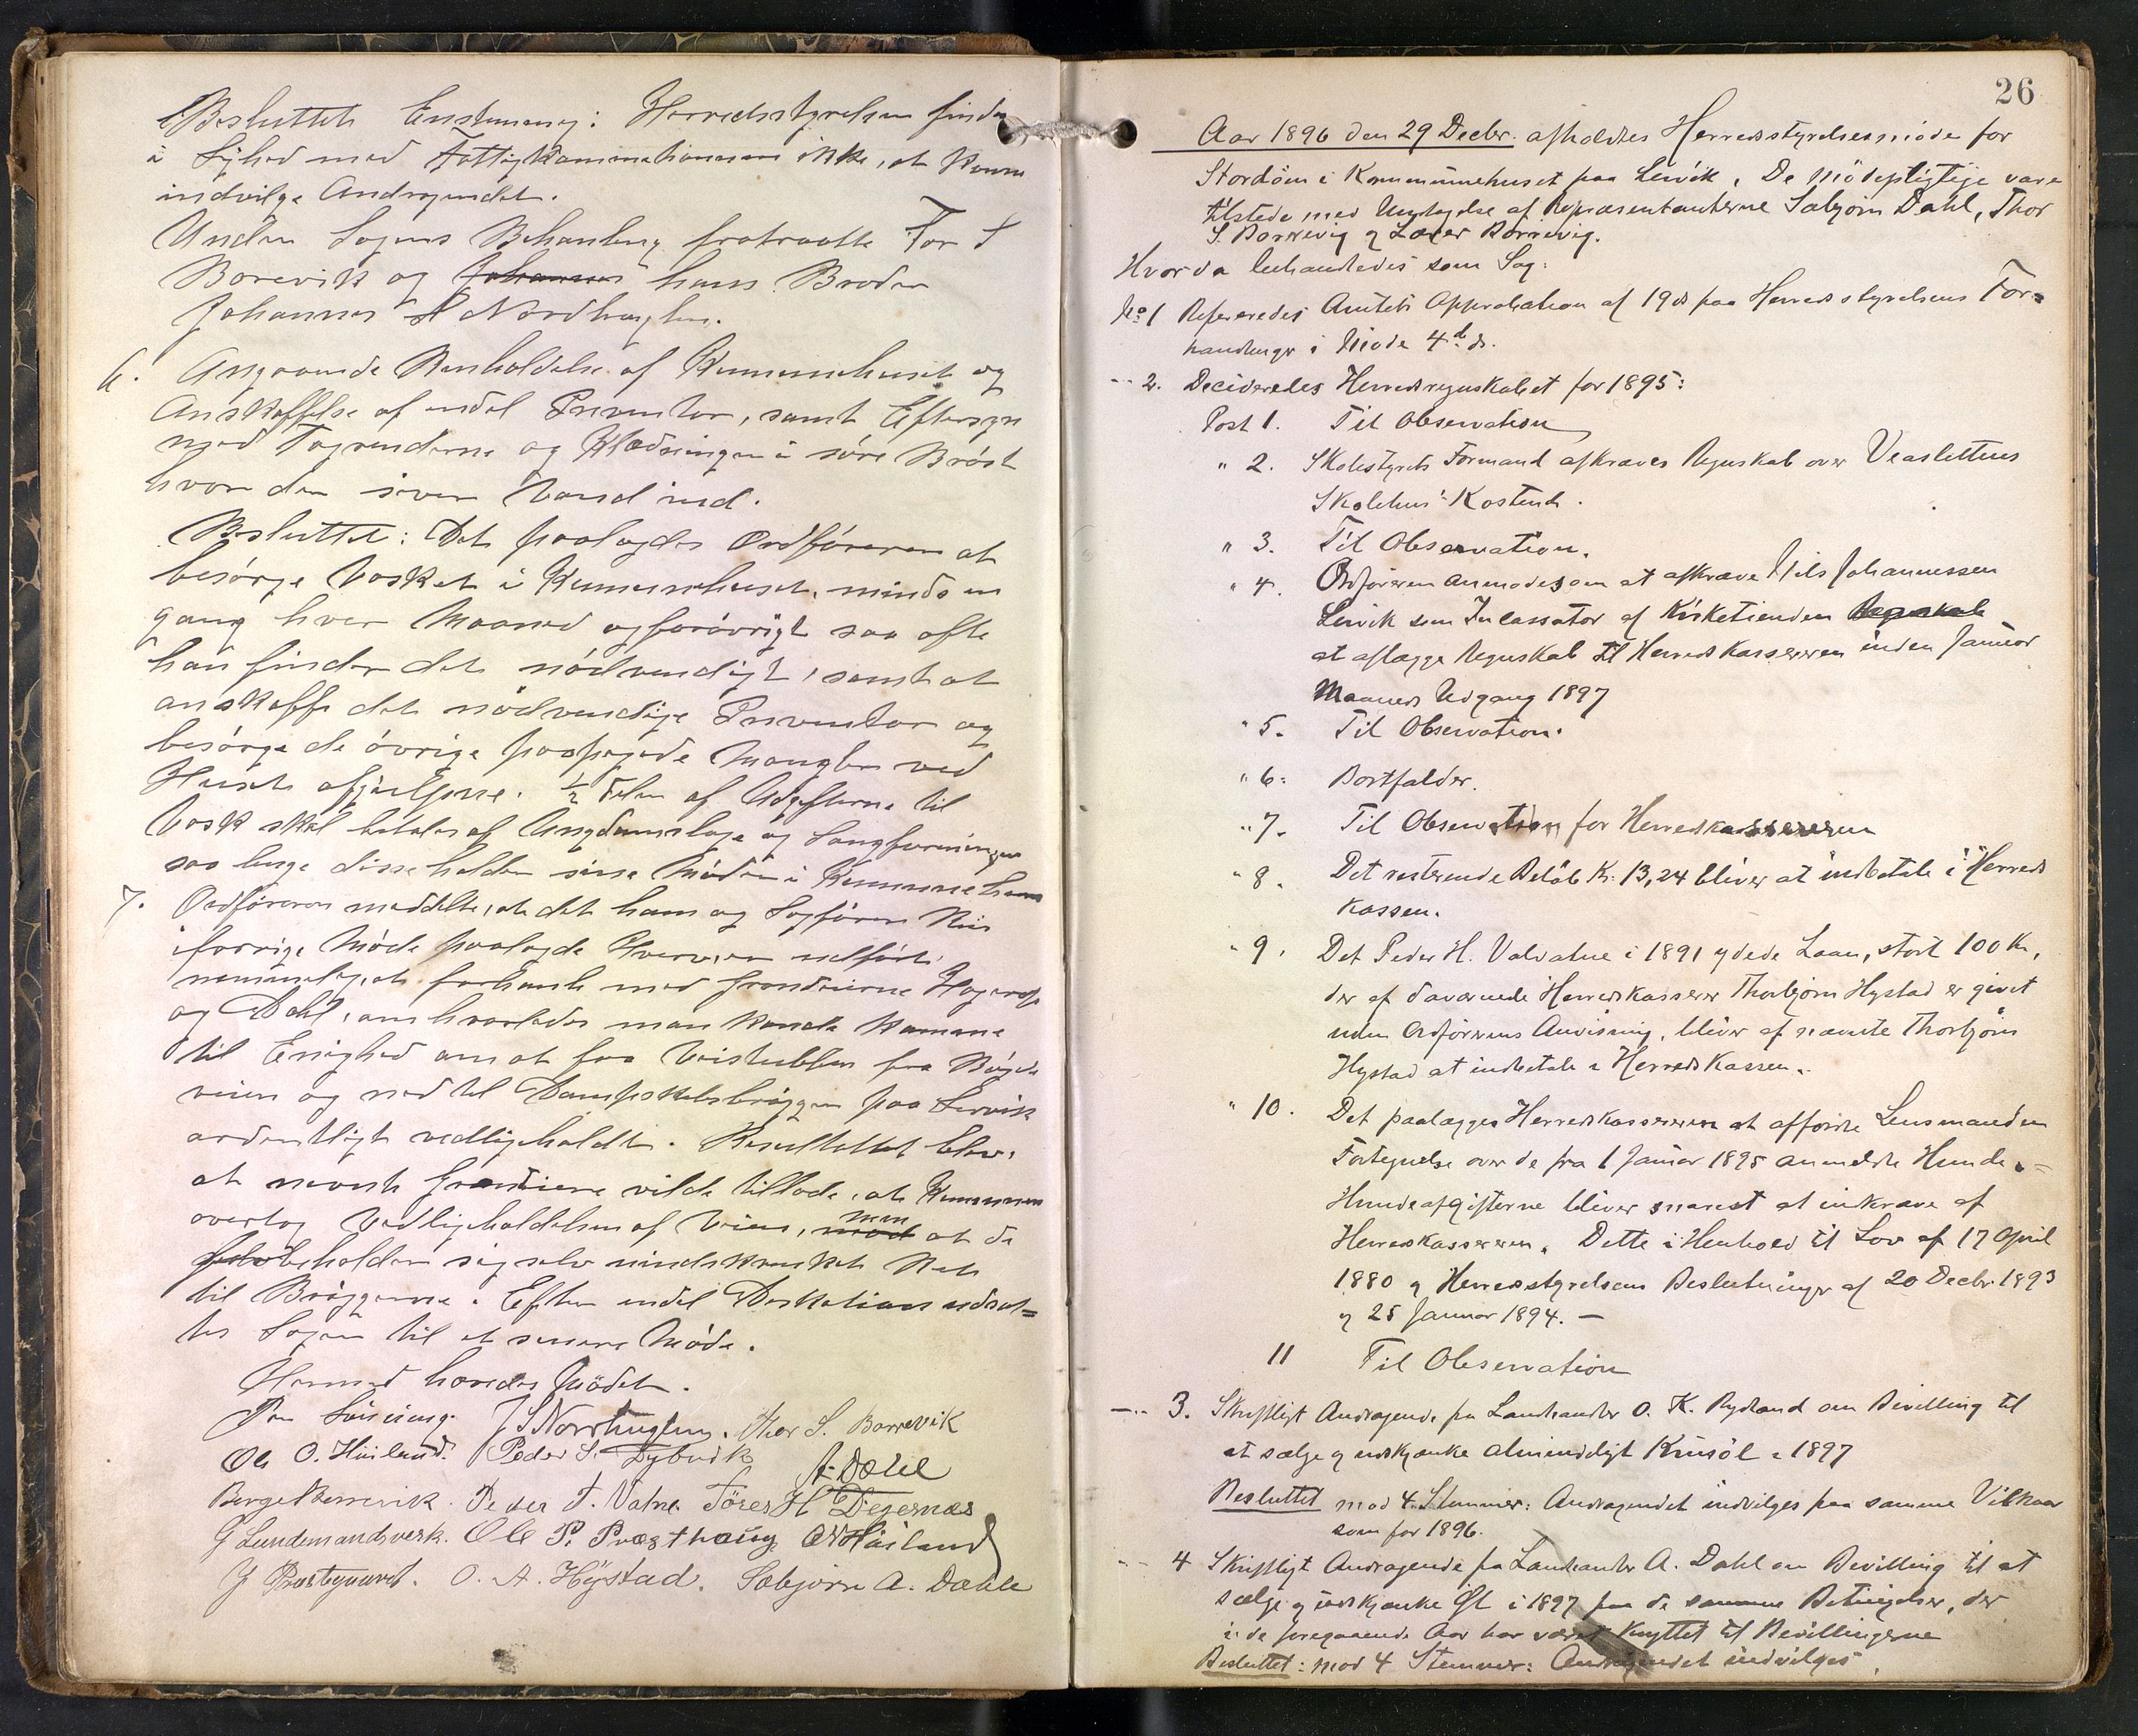 Besluttet Enstemmig: Herredsstyrelsen finder
i Lighed med Fattigkommisionen ikke, at kunne
indvilge Andragendet.
Under Sagens Behandling fratraatte Tor S
Borevik og Johannes hans Broder
Johannes S Nordhuglen.
6. Angaaende Renholdelse af Kommunehuset og
Anskaffelse af endel Inventar, samt Eftersyn
med Tagrenderne og Klædningen i søre Brøst
hvor den siver Vand ind.
Besluttet: Det paalægdes Ordføreren at
besørge Vasket i Kommunehuset, minds en
gang hver Maaned og forøvrigt saa ofte
han finder det nødvendigt, samt at
anskaffe det nødvendige Inventar og
besørge de øvrige paapegede Mangler ved
Huset afhjælpne. ½ delen af Udgifterne til
Vask skal betales af Ungdomslage og Sangforeningen
saa lenge disse holder sine Møder i Kommunehuset
7. Ordføreren meddelte, at det ham og Sagfører
i forrige Møde paalagde Hverv, var udført,
nemmelig, at forhandle med grondeierne
og Dahl, om hvorledes man kunde komme
til Enighed om at faa Veistubben fra Bygde
veien og ned til Dampskibsbryggen paa Lervik
ordentligt vedligeholdt. Resultattet blev,
at nevnte grondeiere vilde tillade, at Kommunen
overtog Vedligeholdelsen af Veien, mod men at de
forbeholder sig selv uindskrenket Ret
til Bryggerne. Efter endel Diskution udsat=
tes Sagen til et senere Møde.
Hermed hævedes Mødet.
J S Nordhuglen. Thor S. Borrevik
Ole O. Hüiland. Peder S. Dybvik A. Dahl
Berge Borrevik. Peder T. Vatne Töres H Digernæs
G Lundemandsverk. Ole P. Præsthaug O Hüiland
J Præstegaard. O. A. Hÿstad. Sæbjørn A. Dahle
26
Aar 1896 den 29 Decbr. afholdtes Herredsstyrelsesmøde for
Stordøen i Kommunehuset paa Lervik. De mødepligtige vare
tilstede med Undtagelse af Repræsentanterne Sæbjørn Dahl, Thor
S. Borrevig og Lærer Borrevig.
Hvor da behandledes som Sag:
No 1 Refereredes Amtets Approbation af 19 ds paa Herredsstyrelsens For=
handlinger i Møde 4de ds.
-"- 2. Decideredes Herredsregnskabet for 1895:
Post 1. Til Observation
" 2. Skolestyrets Formand afkræves Regnskab over Veaslettens
Skolehus' Kostende.
" 3. Til Observation.
" 4. Ordføreren anmodes om at afkræve Nils Johannessen
Lervik som Incassator af Kirketienden Regnskab
at aflægge Regnskab til Herredskassereren inden Januar
Maaneds Udgang 1897
" 5. Til Observation.
" 6. Bortfalder.
" 7. Til Observation for Herredskassereren
" 8. Det resterende Beløb Kr. 13,24 bliver at indbetale i Herreds
kassen.
" 9. Det Peder H. Valvatne i 1891 ydede Laan, stort 100 Kr,
der af daværende Herredskasserer Thorbjørn Hystad er givet
uden Ordførerens Anvisning, bliver af nævnte Thorbjørn
Hystad at indbetale i Herredskassen.
" 10. Det paalægges Herredskassereren at affordre Lensmanden
Fortegnelse over de fra 1 Januar 1895 anmeldte Hunde. =
Hundeafgifterne bliver snarest at indkræve af
Herredskassereren. Dette i Henhold til Lov af 17 April
1880 og Herredsstyrelsens Beslutninger af 20 Decbr. 1893
og 25 Januar 1894. —
11 Til Observation
-"- 3. Skriftligt Andragende fra Landhandler O. K. Rydland om Bevilling til
at sælge og udskjænke almindeligt Krusøl i 1897
Besluttet mod 4 Stemmer: Andragendet indvilges paa samme Vilkaar
som for 1896.
-"- 4 Skriftligt Andragende fra Landhandler A. Dahl om Bevilling til at
sælge og udskjænke Øl i 1897 paa de samme Betingelser, der
i de foregaaende Aar har været knyttet til Bevillingerne
Besluttet: mod 4 Stemmer: Andragendet indvilges